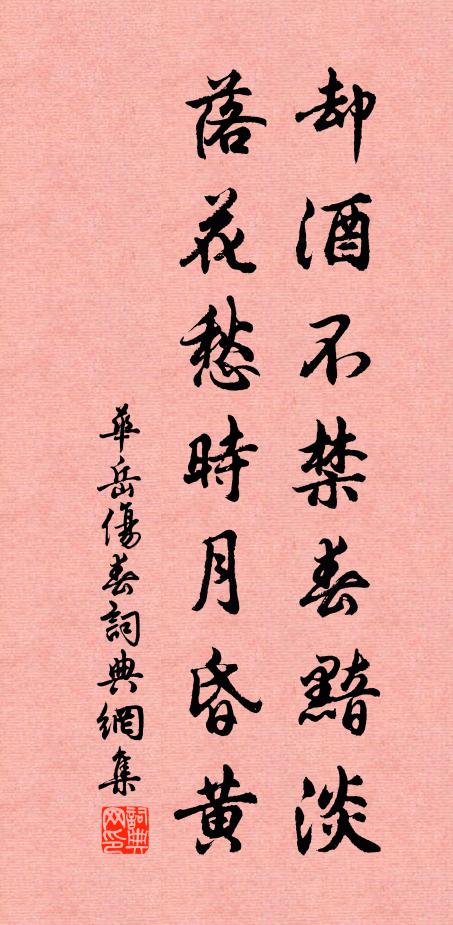 却酒不禁春黯淡
落花愁時月昏黄
華岳傷春詞典網集
詞典网印